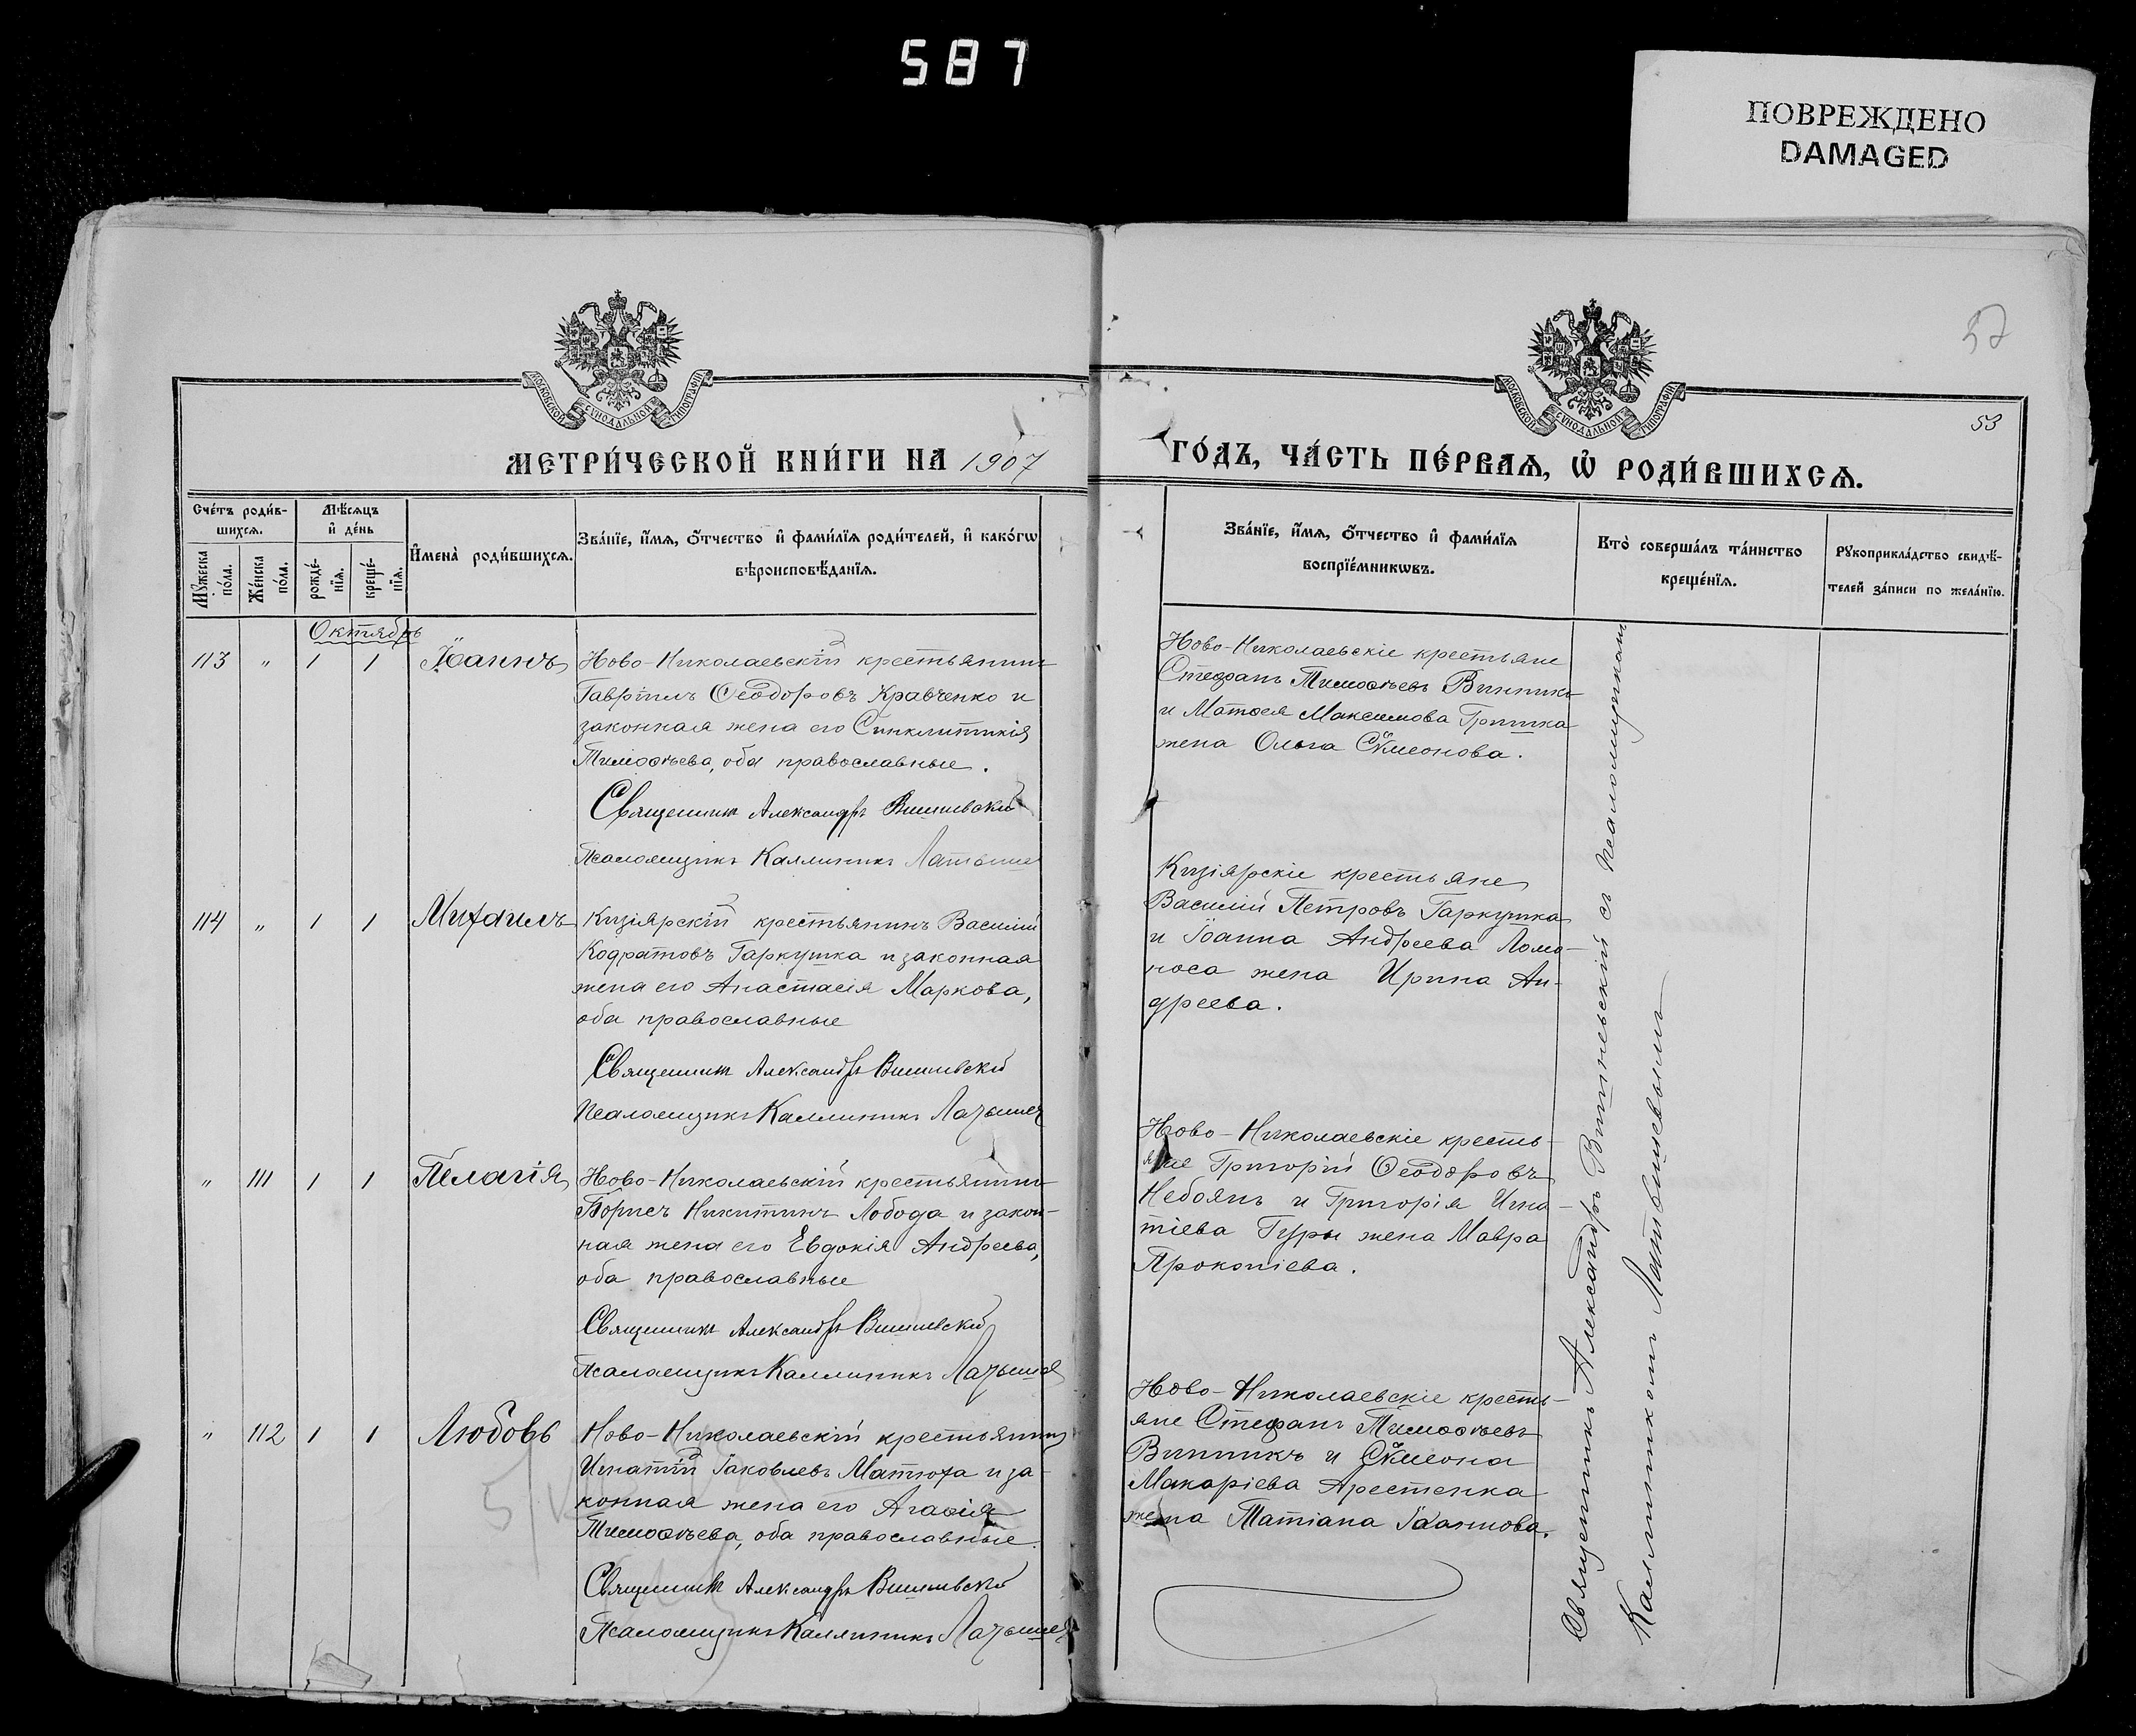 587
ПОВРЕЖДЕНО
DAMAGED
57
53
МОСКОВСКОЙ СѴНОДАЛЬНОЙ ТИПОГРАФІИ
МОСКОВСКОЙ СѴНОДАЛЬНОЙ ТИПОГРАФІИ
МЕТРИ́ЧЕСКОЙ КНИ́ГИ НА 1907
ГО́ДЪ, ЧА́СТЬ ПЕ́РВАѦ, Ѡ҆ РОДИ́ВШИХСѦ.
Сче́тъ роди́в-
шихсѧ.
Мꙋ́жеска
по́ла.
Же́нска
по́ла.
Мѣ́сѧцъ
и҆ де́нь
рожде́-
нїѧ.
креще́-
нїѧ.
И҆мена̀ роди́вшихсѧ.
Зва́нїе, и҆́мѧ, ѻ҆́тчество и҆ фами́лїѧ роди́телей, и҆ како́гѡ
вѣроисповѣ́данїѧ.
Зва́нїе, и҆́мѧ, ѻ҆́тчество и҆ фами́лїѧ
воспрїе́мникѡвъ.
Кто̀ соверша́лъ та́инство
креще́нїѧ.
Рꙋкоприкла́дство свидѣ́-
телей за́писи по жела́нїю.
Октябрь
113 " 1 1 Іоаннъ
Ново-Николаевскій крестьянинъ
Гавріилъ Ѳеодоровъ Кравченко и
законная жена его Синклитикія
Тимоѳѣева, оба православные.
Священникъ Александръ Вишневскій
Псаломщикъ Каллиникъ Латышев
Ново-Николаевскіе крестьяне
Стефанъ Тимоѳѣевъ Винникъ
и Матѳея Максимова Гришка
жена Ольга Сѵмеонова.
114 " 1 1 Михаилъ
Кизіярскій крестьянинъ Василій
Кодратовъ Гаркушка и законная
жена его Анастасія Маркова,
оба православные
Священникъ Александръ Вишневскій
Псаломщикъ Каллиникъ Латышев
Кизіярскіе крестьяне
Василій Петровъ Гаркушка
и Іоанна Андреева Ломо-
носа жена Ирина Ан-
дреева.
" 111 1 1 Пелагія
Ново-Николаевскій крестьянинъ
Борисъ Никитинъ Лобода и закон-
ная жена его Евдокія Андреева,
оба православные
Священникъ Александръ Вишневскій
Псаломщикъ Каллиникъ Латышев
Ново-Николаевскіе кресть-
яне Григорій Ѳеодоровъ
Небоянъ и Григорія Игна-
тіева Гуры жена Мавра
Прокопіева.
" 112 1 1 Любовь
Ново-Николаевскій крестьянинъ
Игнатій Іаковлевъ Матюха и за-
конная жена его Агаѳія
Тимоѳѣева, оба православные.
Священникъ Александръ Вишневскій
Псаломщикъ Каллиникъ Латышев
Ново-Николаевскіе кресть-
яне Стефанъ Тимоѳѣевъ
Винникъ и Сѵмеона
Макаріева Арестенка
жена Татіана Іоаннова.
Священникъ Александръ Вишневскій съ псаломщикомъ
Каллиникомъ Латышевымъ